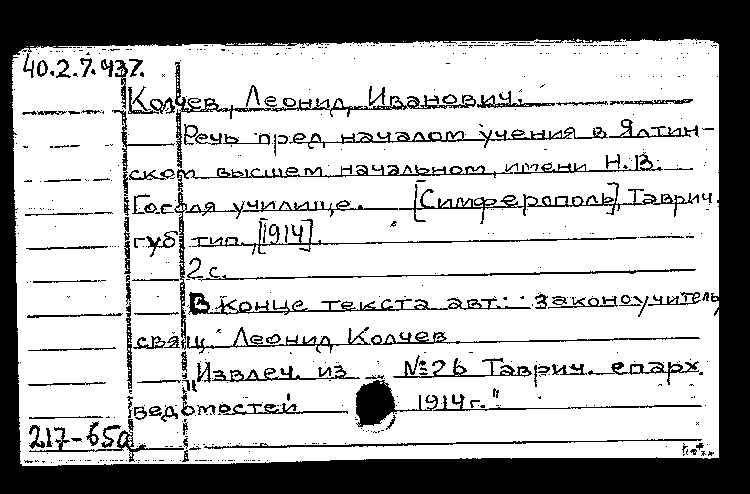 40.2.7.437.
Колчев, Леонид Иванович.
Речь пред началом учения в Ялтин-
ском высшем начальном, имени Н.В.
Гоголя училище. [Симферополь], Таврич.
губ. тип., [1914].
2 с.
В конце текста авт.: законоучитель
свящ. Леонид Колчев.
"Извлеч. из №26 Таврич. епарх.
ведомостей 1914 г."
217-65а